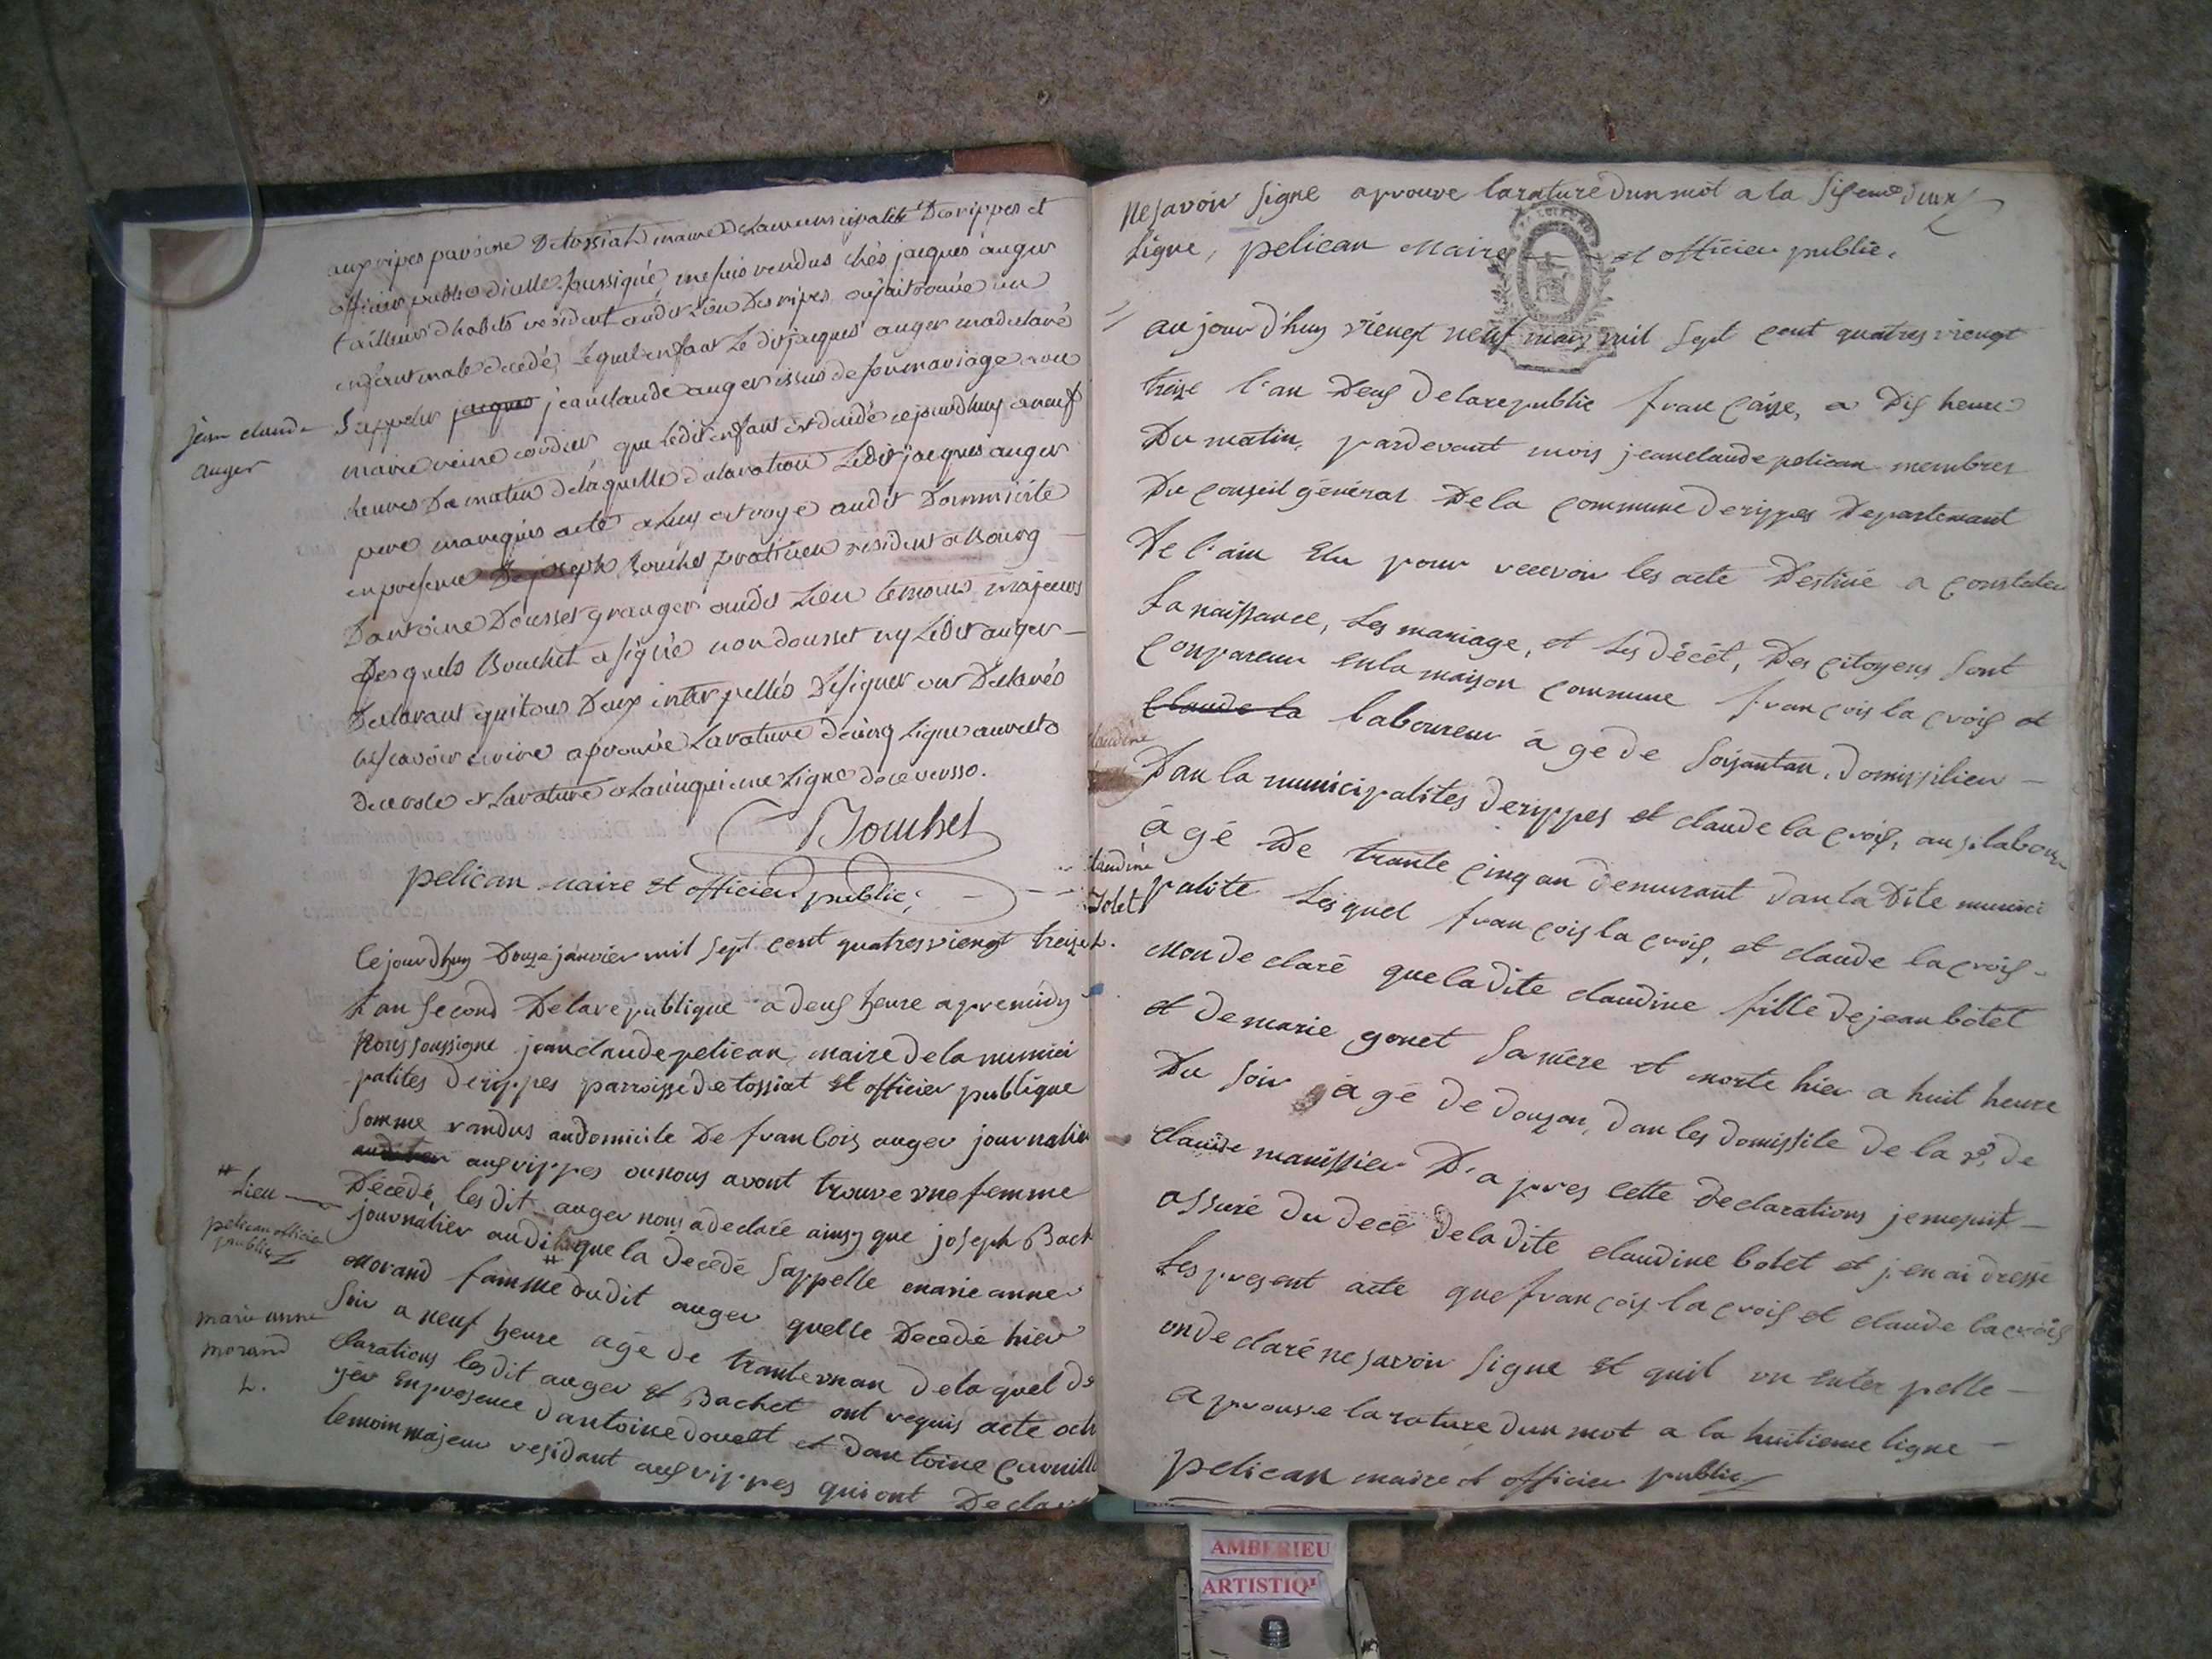 aux ripes paroisse De tossiat maire De la municipalité Des rippes et
officier public d'icelle soussigné, me suis rendus chés jacques auger
tailleur d'habits resident audit Lieu Des ripes ou j'ai trouvée un
enfant male decedé, Lequel enfant Le dit jacques auger m'a declaré
S'appeler jacques jean claude auger issus de son mariage avec
jean claude
auger
marie reine cordier, que ledit enfant est decedé cejourd'huy a neuf
heures Du matin De laquelle declaration Ledit jacques auger
pere m'a requis acte a luy octroyé audit Dommicile
en presence De joseph Bouchet praticien resident a Bourg
D'antoine Dousset granger audit Lieu temoins majeurs
Desquels Bouchet a signé non dousset ny Ledit auger
Declarant qui tous Deux interpellés De signer ont Declarés
ne scavoir ecrire aprouvée La rature de cinq Ligne au recto
De ce role et La rature a La cinquieme Ligne de ce versso.
Bouchet
pelican maire et officier public;
Ce jour d'huy Douze janvier mil sept cent quatres viengt treize
L'an second De la republique a deux heure apremidy
Nous soussigne jean claude pelican maire de la munici
palites de rippes parroisse de tossiat et officier publique
somme randus au domicile De francois auger journalier
aux rippes ou nous avont trouve une femme
Décedé, les dit auger nous a declaré ainsy que joseph Bach
# Lieu
pelican officier
public
journalier audit # que la Decedé sappelle marie anne
Morand famme dudit auger quelle Decedé hier
soir a neuf heure agé de trante un an de la quel de
marie anne
morand
clarations les dit auger et Bachet ont requis acte oct
yér en presence d'antoine douset et d'antoine
temoin majeur residant aux rippes qui ont Declar
ne savoir signe aprouve la rature d'un mot a la sisieme
ligne, pelican Maire et officier public.
aujourd'huy viengt neuf mars mil sept cent quatres viengt
treize l'an Deux de la republic francaise, a Dix heure
Du matin, pardevant mois jean claude pelican membres
Du conseil général De la commune de rippes Departemant
De l'ain Elu pour recevoir les acte Destiné a constater
La naissance, Les mariage, et Les décèt, Des citoyens sont
compareu en la maison commune francois la croix et
claude la laboureur âgé de soisantan, domissilier
Dan la municipalites de rippes et claude la croix, ausi labour
claudine
âgé De trante cinq an demeurant dan la Dite munici
claudine
Bolet
palite Les quel francois la croix, et claude la croix
Mon declaré que la dite claudine fille de jean botet
et de marie gonet sa mère et morte hier a huit heure
Du soir âgé de douzan, dan les domissile de la ve de
claude manissier D'apres cette declarations je me suit
assuré du decé de la dite claudine botet et j'en ai dressé
Les present acte que francois la croix et claude la croix
on declaré ne savoir signe et quil on enter pelle
aprouve la rature d'un mot a la huitieme ligne
pelican maire et officier public
AMBERIEU
ARTISTIQ